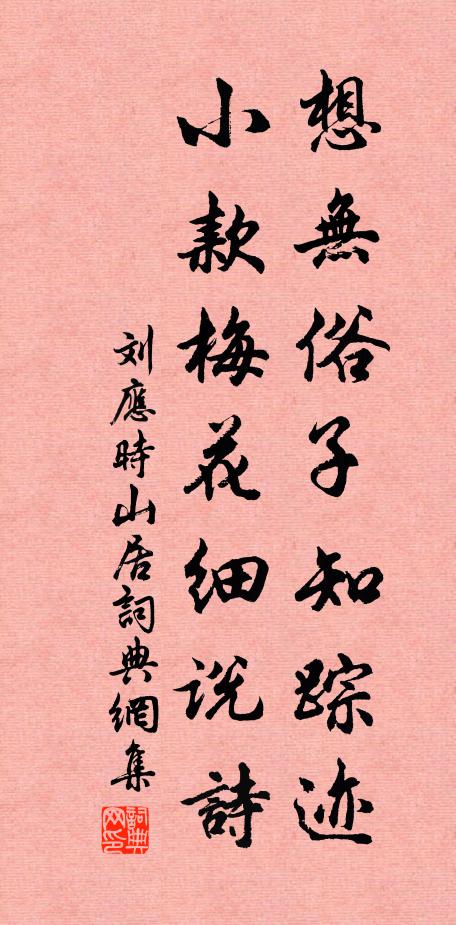 想無俗子知踪迹
小款梅花细说詩
刘應時山居詞典網集
詞典网印